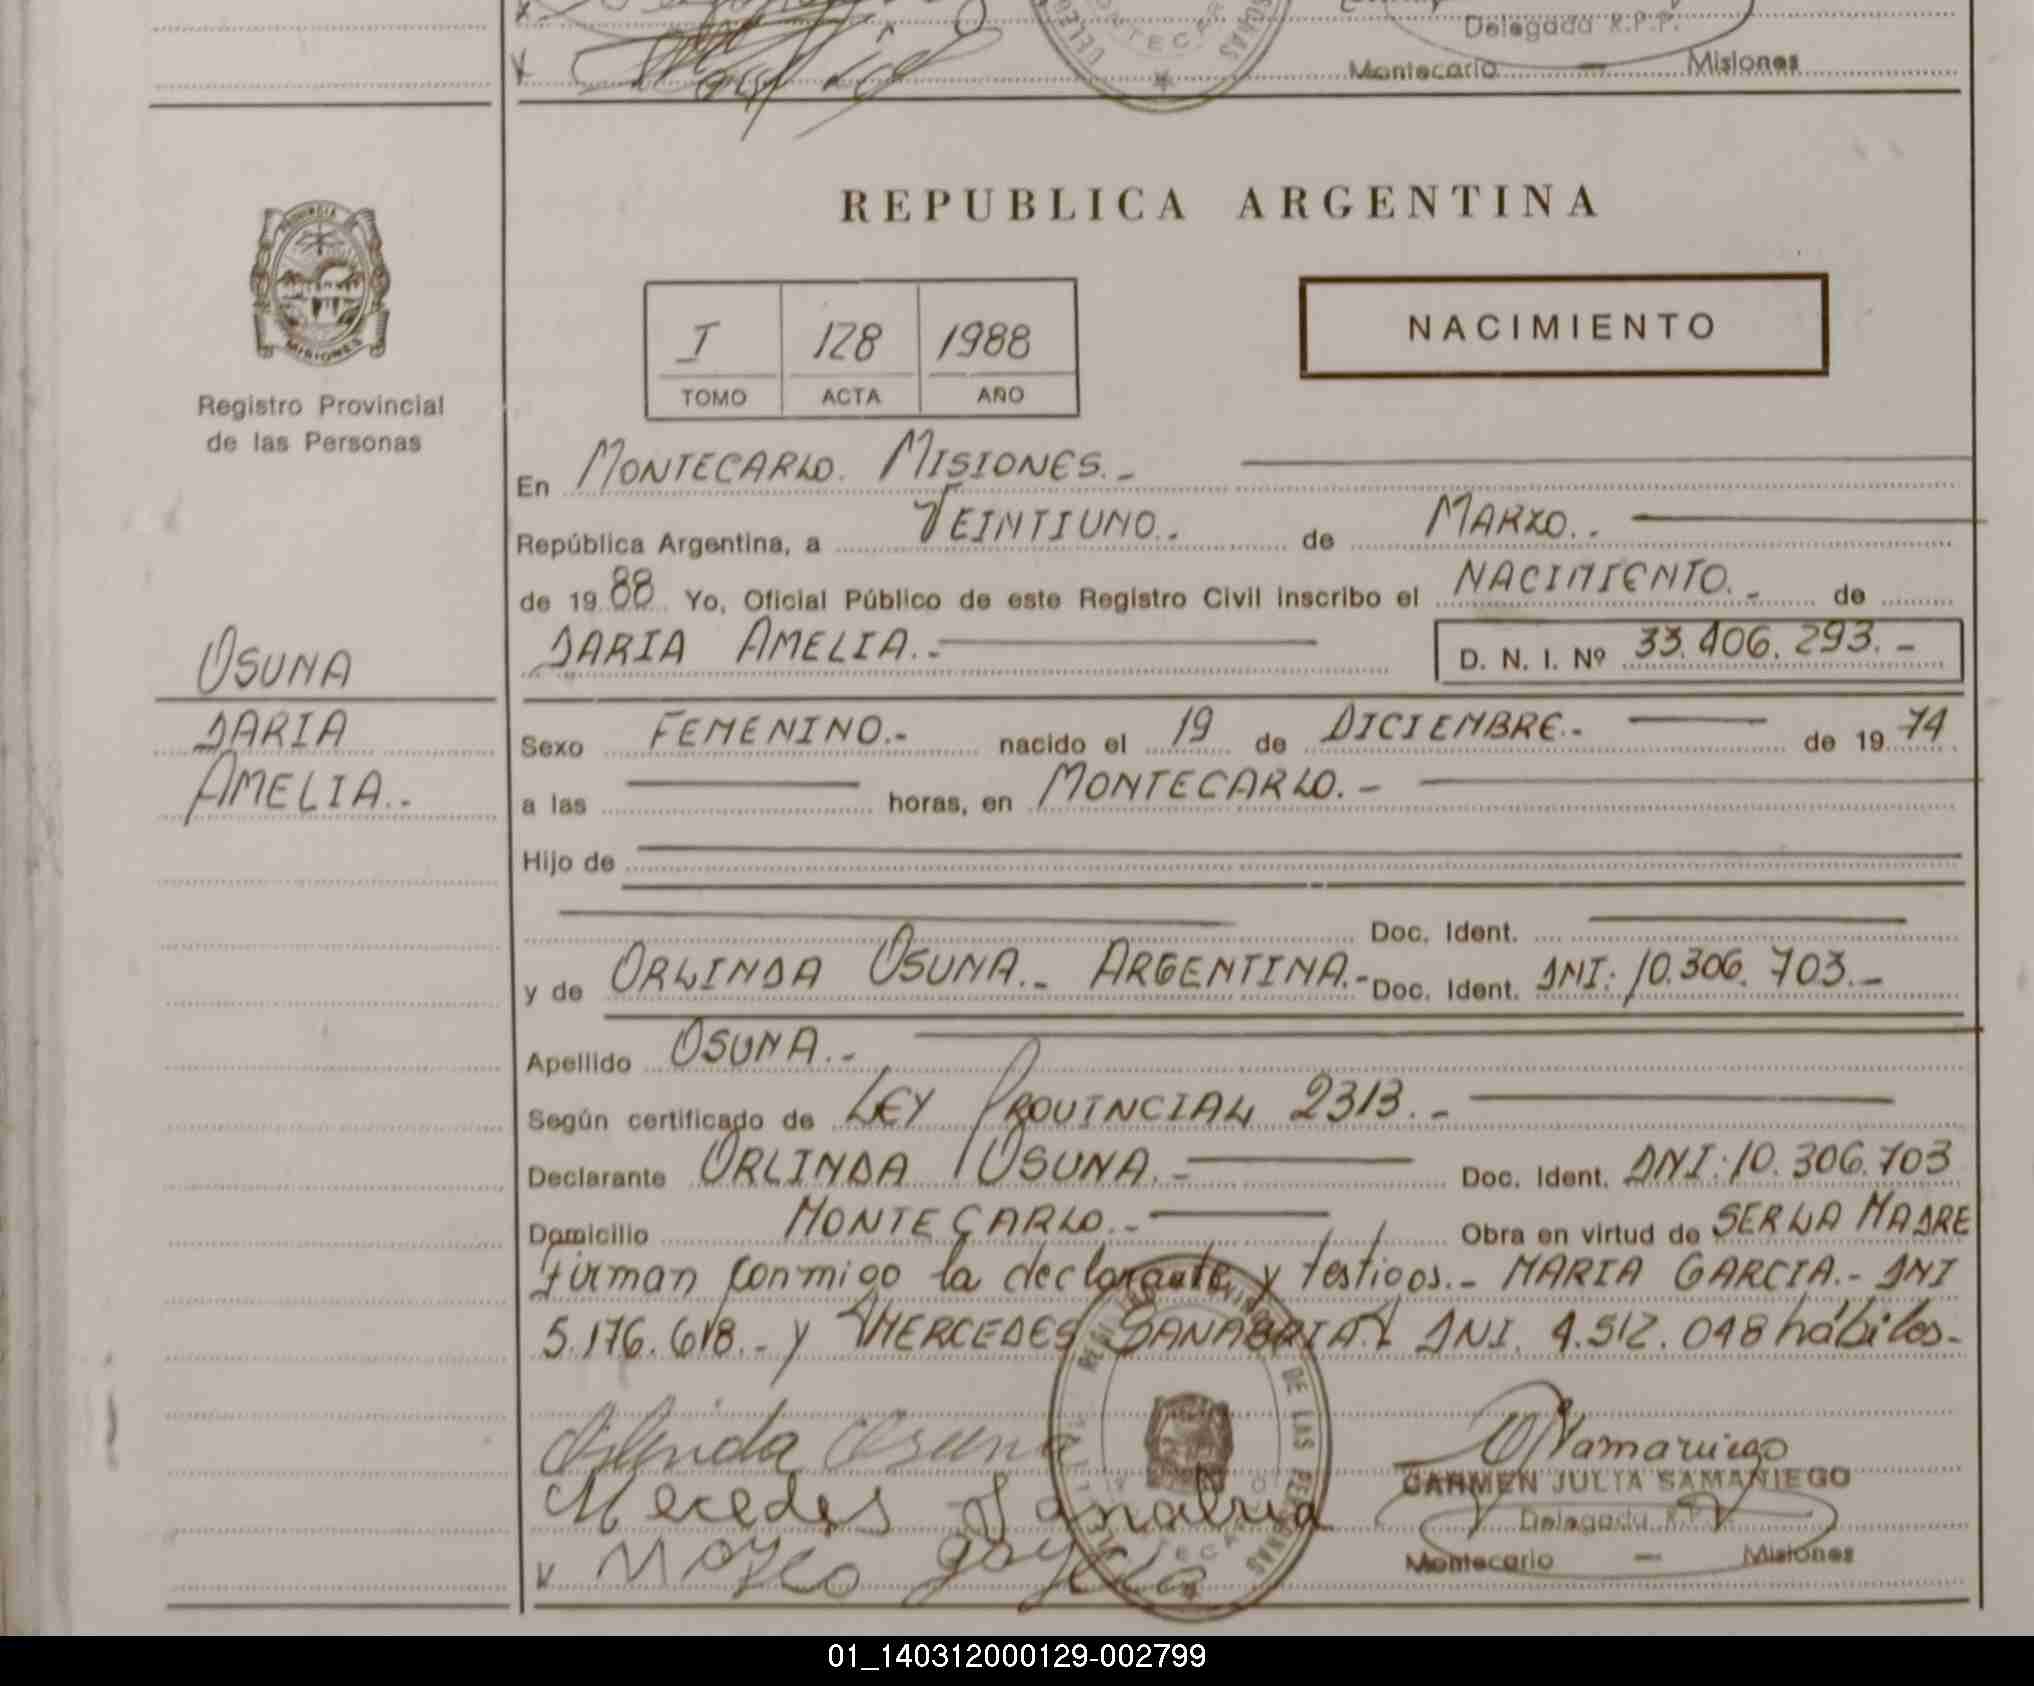 Delegada R.P.P.
Montecarlo — Misiones
REPUBLICA ARGENTINA
PROVINCIA
MISIONES
Registro Provincial
de las Personas
I 128 1988
TOMO ACTA AÑO
NACIMIENTO
En MONTECARLO. MISIONES.-
República Argentina, a VEINTIUNO.. de MARZO..
de 19 88 Yo, Oficial Público de este Registro Civil inscribo el NACIMIENTO.- de
DARIA AMELIA..- D. N. I. Nº 33.406.293.-
OSUNA
DARIA
AMELIA..
Sexo FEMENINO.- nacido el 19 de DICIEMBRE.- de 19 74
a las horas, en MONTECARLO.-
Hijo de
Doc. Ident.
y de ORLINDA OSUNA.- ARGENTINA.- Doc. Ident. DNI: 10.306.703.-
Apellido OSUNA.-
Según certificado de LEY PROVINCIAL 2313.-
Declarante ORLINDA OSUNA.- Doc. Ident. DNI: 10.306.703
Domicilio MONTECARLO.- Obra en virtud de SER LA MADRE
Firman conmigo la declarante y testigos.- MARIA GARCIA.- DNI
5.176.618.- y MERCEDES SANABRIA DNI. 4.512.048 hábiles-
Orlinda Osuna
Mecedes Sanabria
CARMEN JULIA SAMANIEGO
Delegada R.P.P.
Montecarlo — Misiones
DE LAS PERSONAS
01_140312000129-002799